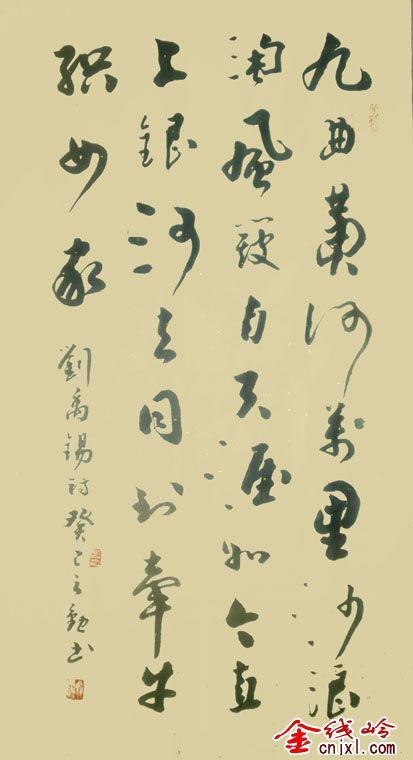 九曲黃河萬里沙浪
淘風簸自天涯如今直
上銀河去同到牽牛
織女家
劉禹錫詩癸巳書
金线岭
cnjxl.com